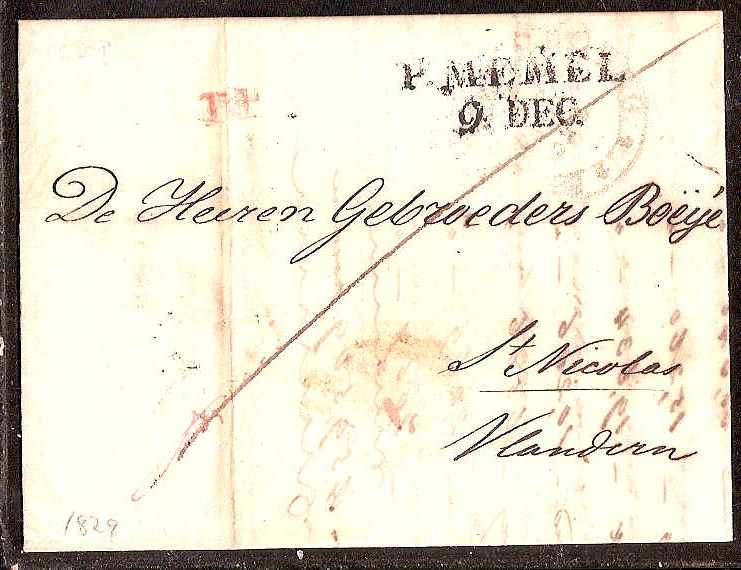 P. MEMEL
9. DEC.
De Heeren Gebroeders Boëÿé
St Nicolas
Vlandern
1829